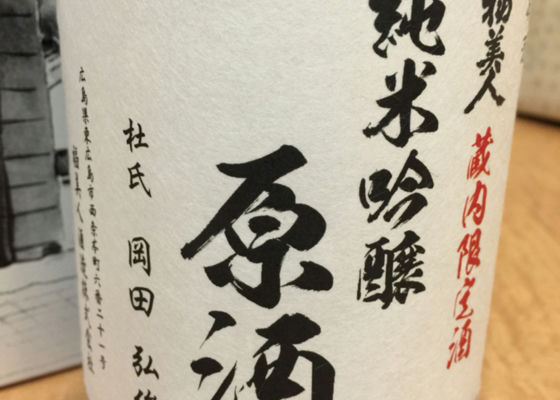 福美人
蔵内限定酒
純米吟醸
原酒
杜氏 岡田 弘
広島県東広島市西条本町六番二十一号
福美人酒造株式会社